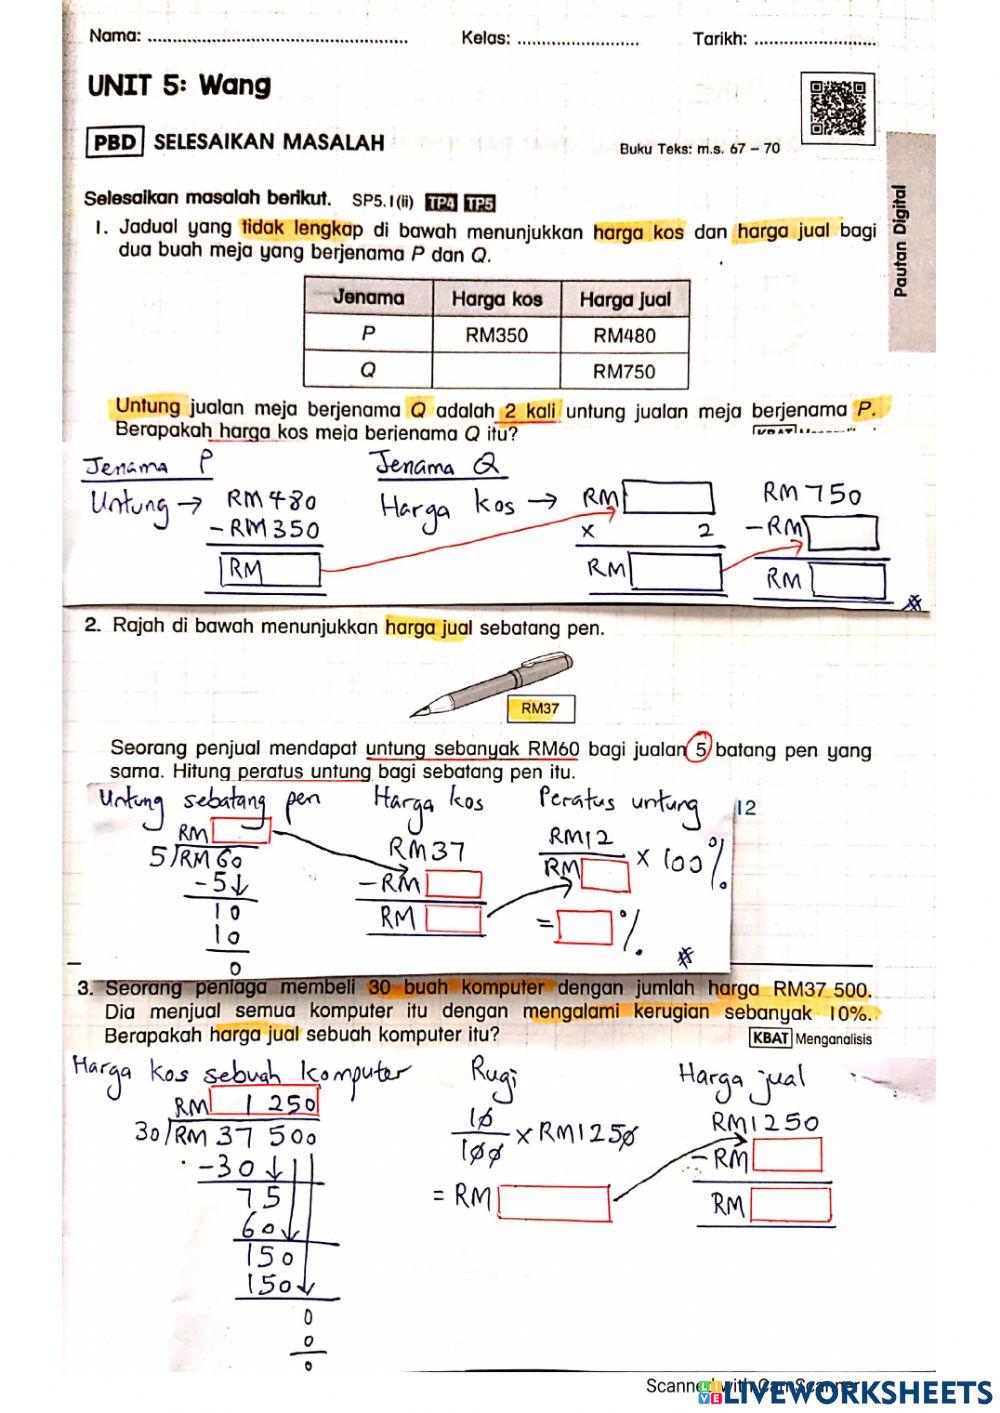 Nama: ................ Kelas: ................ Tarikh: ................
UNIT 5: Wang
PBD SELESAIKAN MASALAH
Buku Teks: m.s. 67 – 70
Pautan Digital
Selesaikan masalah berikut. SP5.1(ii) TP4 TP5
1. Jadual yang tidak lengkap di bawah menunjukkan harga kos dan harga jual bagi
dua buah meja yang berjenama P dan Q.
Jenama Harga kos Harga jual
P RM350 RM480
Q RM750
Untung jualan meja berjenama Q adalah 2 kali untung jualan meja berjenama P.
Berapakah harga kos meja berjenama Q itu?
Jenama P Jenama Q
Untung → RM480 Harga kos → RM RM750
- RM350 x 2 - RM
RM RM RM
2. Rajah di bawah menunjukkan harga jual sebatang pen.
RM37
Seorang penjual mendapat untung sebanyak RM60 bagi jualan 5 batang pen yang
sama. Hitung peratus untung bagi sebatang pen itu.
Untung sebatang pen Harga kos Peratus untung 12
RM RM37 RM12
5 RM60 - RM RM x 100%
- 5 RM = %
10
10
0
3. Seorang peniaga membeli 30 buah komputer dengan jumlah harga RM37 500.
Dia menjual semua komputer itu dengan mengalami kerugian sebanyak 10%.
Berapakah harga jual sebuah komputer itu? KBAT Menganalisis
Harga kos sebuah komputer Rugi Harga jual
RM 1 250 10 RM1250
30 RM 37 500 100 x RM1250 - RM
- 30 = RM RM
75
60
150
150
0
0
0
Scanned with CamScanner
LIVEWORKSHEETS